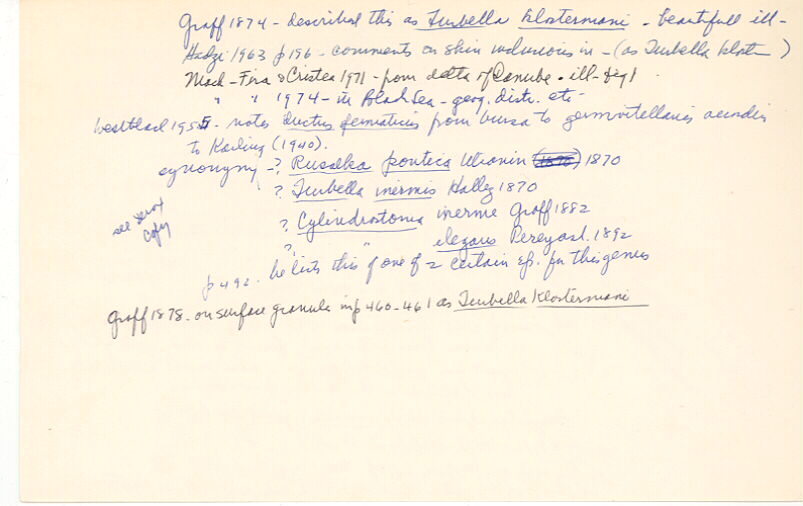 Graff 1874 - described this as Turbella Klostermani - beautifull ill -
Hadzi 1963 p 196 - comments on skin in - (as Turbella Klost )
Mack-Fira & Cristea 1971 - from delta of Danube - ill - fig 1
" " 1974 - in Black Sea - geog. distr. etc -
Westblad 1955 - notes ductus spermaticus from bursa to germovitellaries according
to Karling (1940).
synonymy - ? Rusalka pontica Ulianin 1870
? Turbella inermis Hallez 1870
see xerox
copy
? Cylindrostoma inerme Graff 1882
? " elegans Pereyasl. 1892
p 492. he lists this of one of 2 certain sp. for this genus
Graff 1878. on surface granule in p 460-461 as Turbella Klostermani